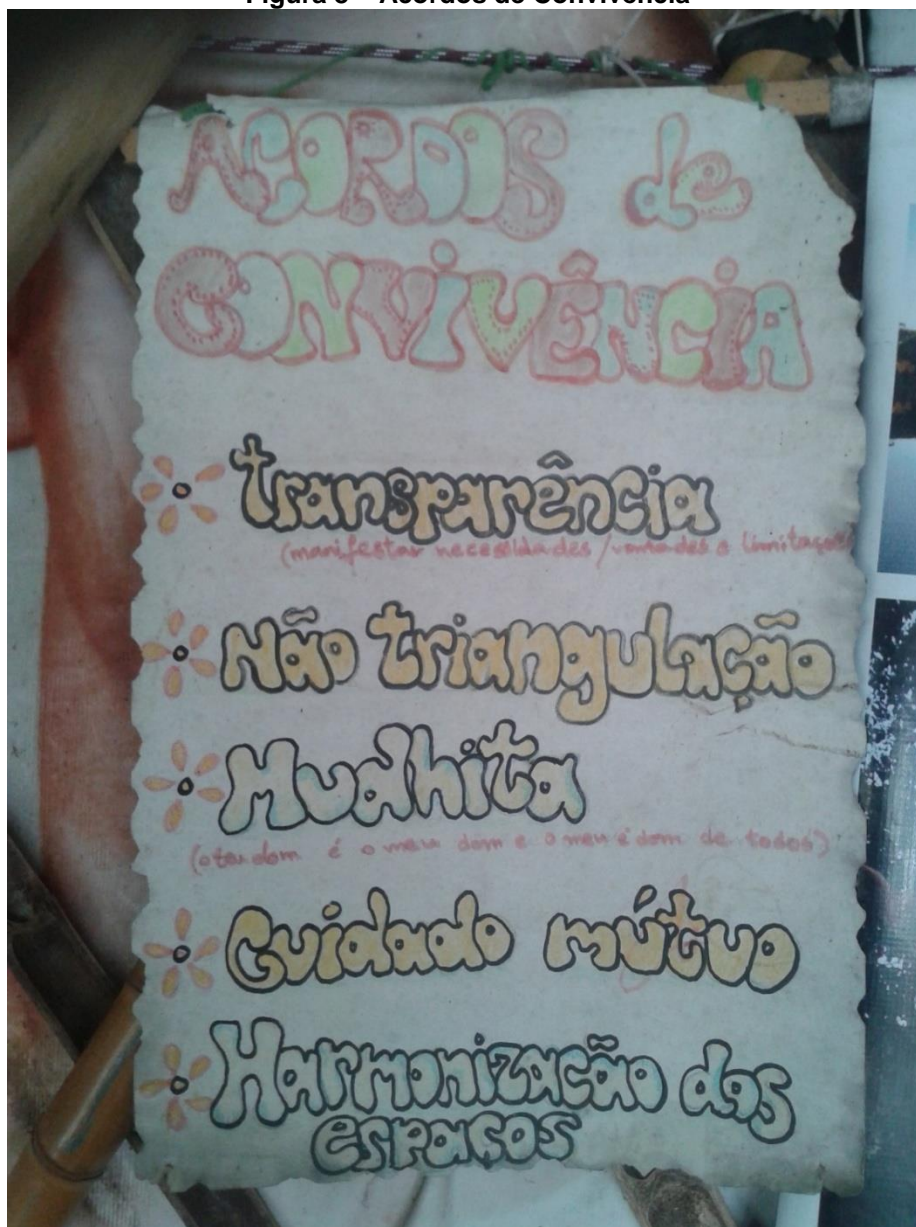 Acordos de Convivência
ACORDOS de
CONVIVÊNCIA
transparência
(manifestar necessidades/vontades e limitações)
Não triangulação
Mudhita
(o teu dom é o meu dom e o meu é dom de todos)
Cuidado mútuo
Harmonização dos
espaços